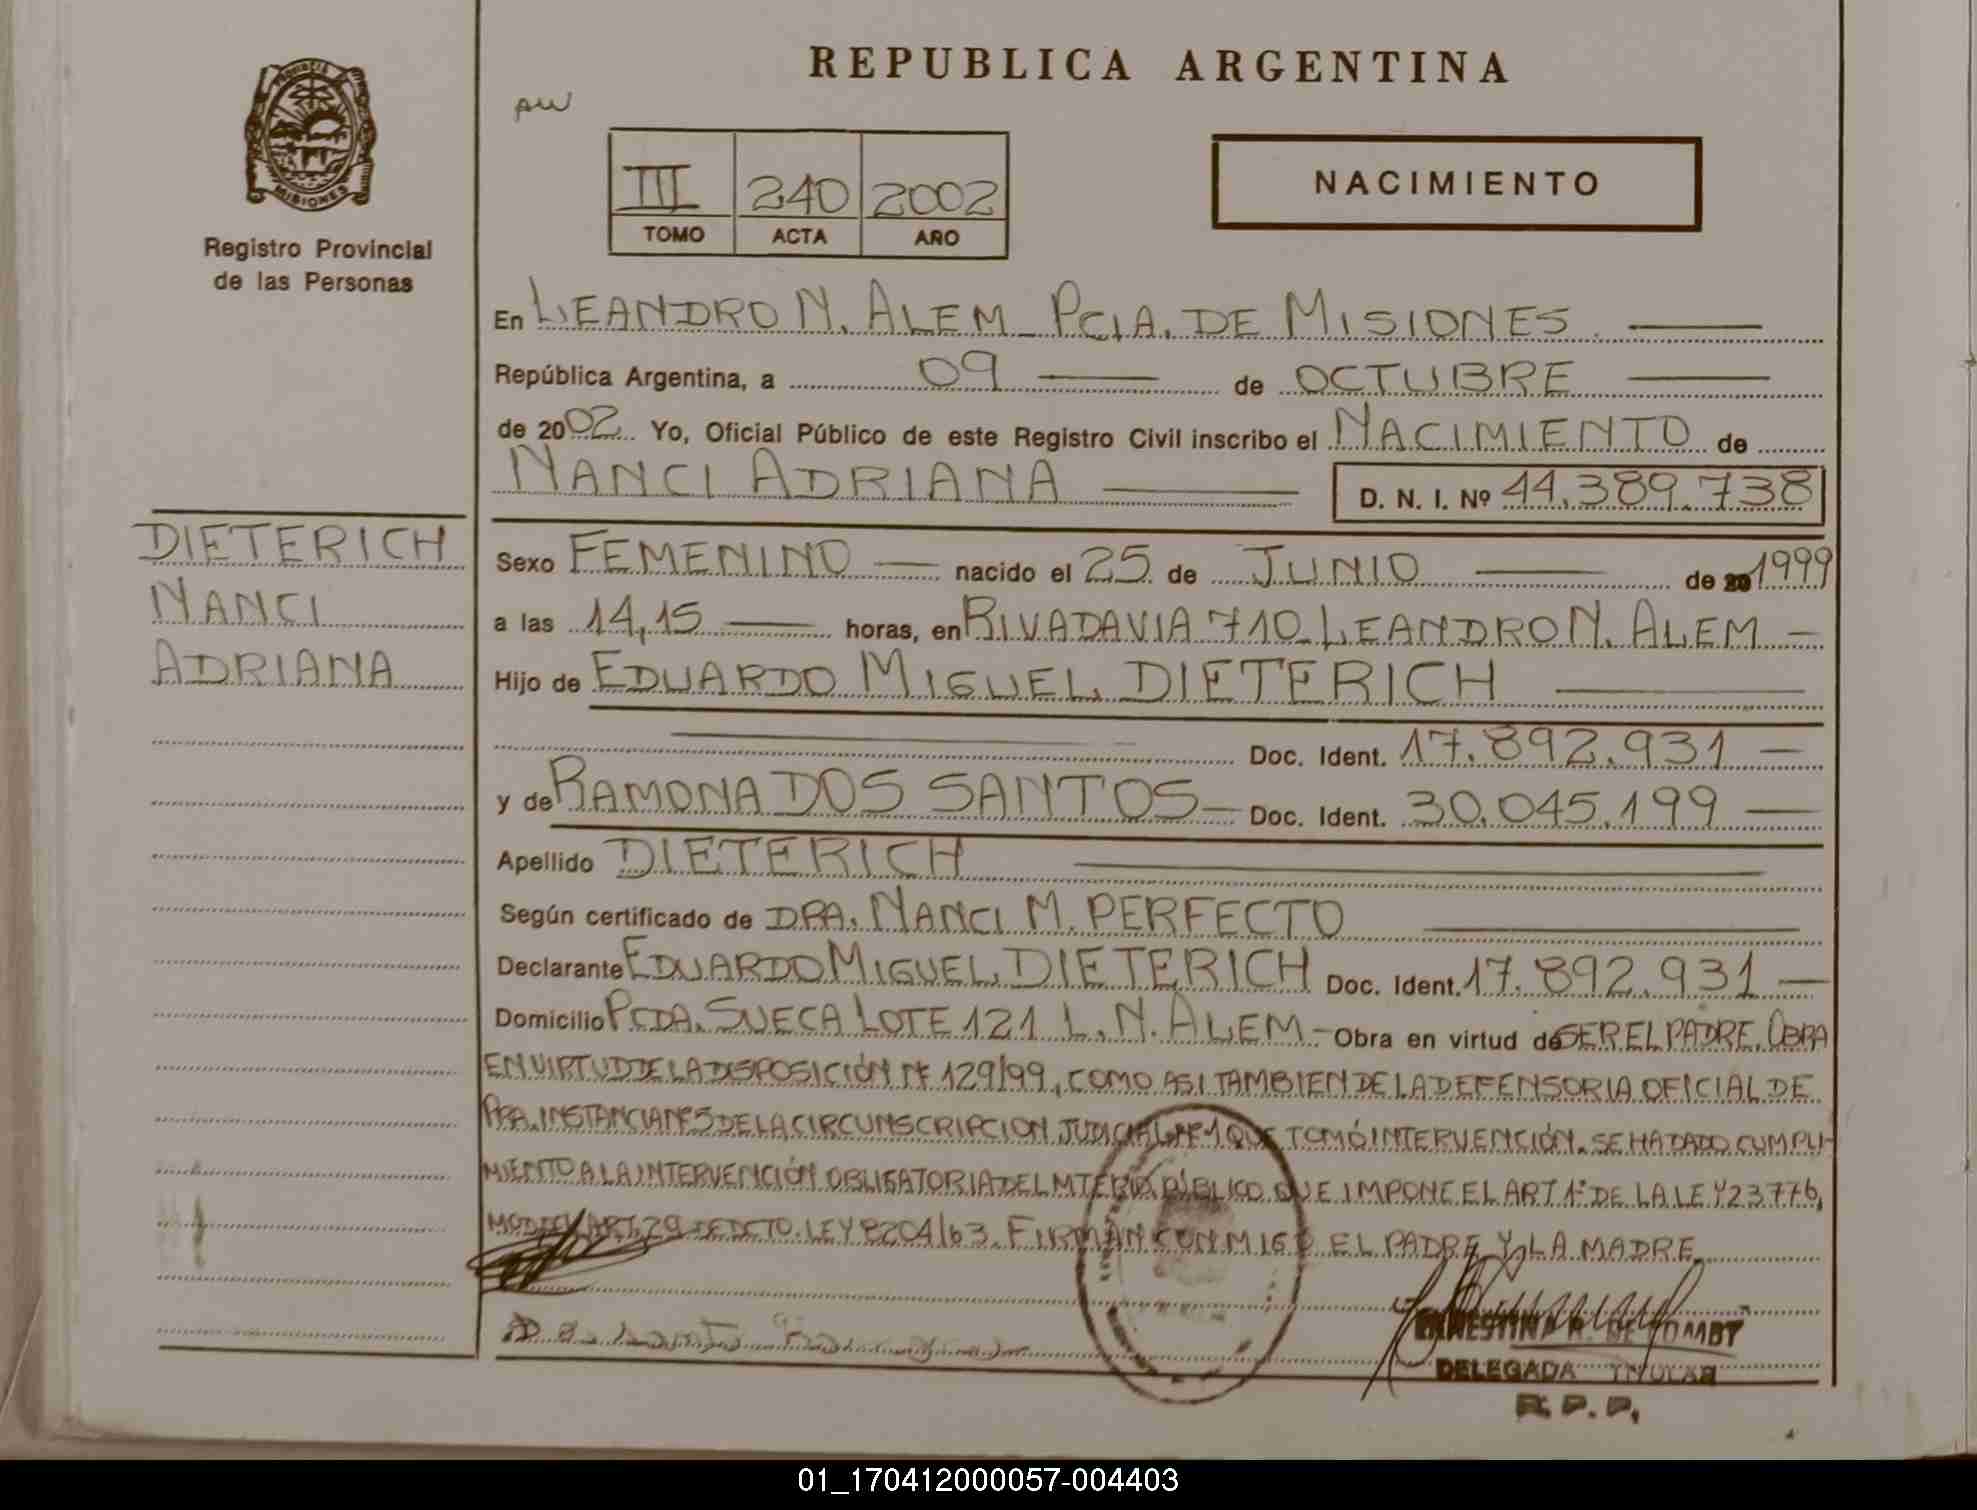 REPUBLICA ARGENTINA
PROVINCIA
MISIONES
Registro Provincial
de las Personas
III 240 2002
TOMO ACTA AÑO
NACIMIENTO
En LEANDRO N. ALEM - PCIA. DE MISIONES.
República Argentina, a 09 de OCTUBRE
de 2002. Yo, Oficial Público de este Registro Civil inscribo el NACIMIENTO de
NANCI ADRIANA D. N. I. Nº 44.389.738
DIETERICH
NANCI
ADRIANA
Sexo FEMENINO nacido el 25 de JUNIO de 20 1999
a las 14,15 horas, en RIVADAVIA 710 - LEANDRO N. ALEM -
Hijo de EDUARDO MIGUEL DIETERICH
Doc. Ident. 17.892.931 -
y de RAMONA DOS SANTOS - Doc. Ident. 30.045.199 -
Apellido DIETERICH
Según certificado de DRA. NANCI M. PERFECTO
Declarante EDUARDO MIGUEL DIETERICH Doc. Ident. 17.892.931 -
Domicilio PCDA. SUECA LOTE 121 L. N. ALEM - Obra en virtud de SER EL PADRE. OBRA
EN VIRTUD DE LA DISPOSICIÓN Nº 129/99, COMO ASI TAMBIEN DE LA DEFENSORIA OFICIAL DE
PRA. INSTANCIA Nº 5 DE LA CIRCUNSCRIPCION JUDICIAL Nº 1 QUE TOMÓ INTERVENCIÓN. SE HA DADO CUMPLI-
MIENTO A LA INTERVENCIÓN OBLIGATORIA DEL MTERIO. PÚBLICO QUE IMPONE EL ART. 1º DE LA LEY 23776,
MODIF. ART. 29 DE DCTO. LEY 8204/63. FIRMAN CONMIGO EL PADRE Y LA MADRE.
ERNESTINA R. DE
DELEGADA TITULAR
R. P. P.
01_170412000057-004403